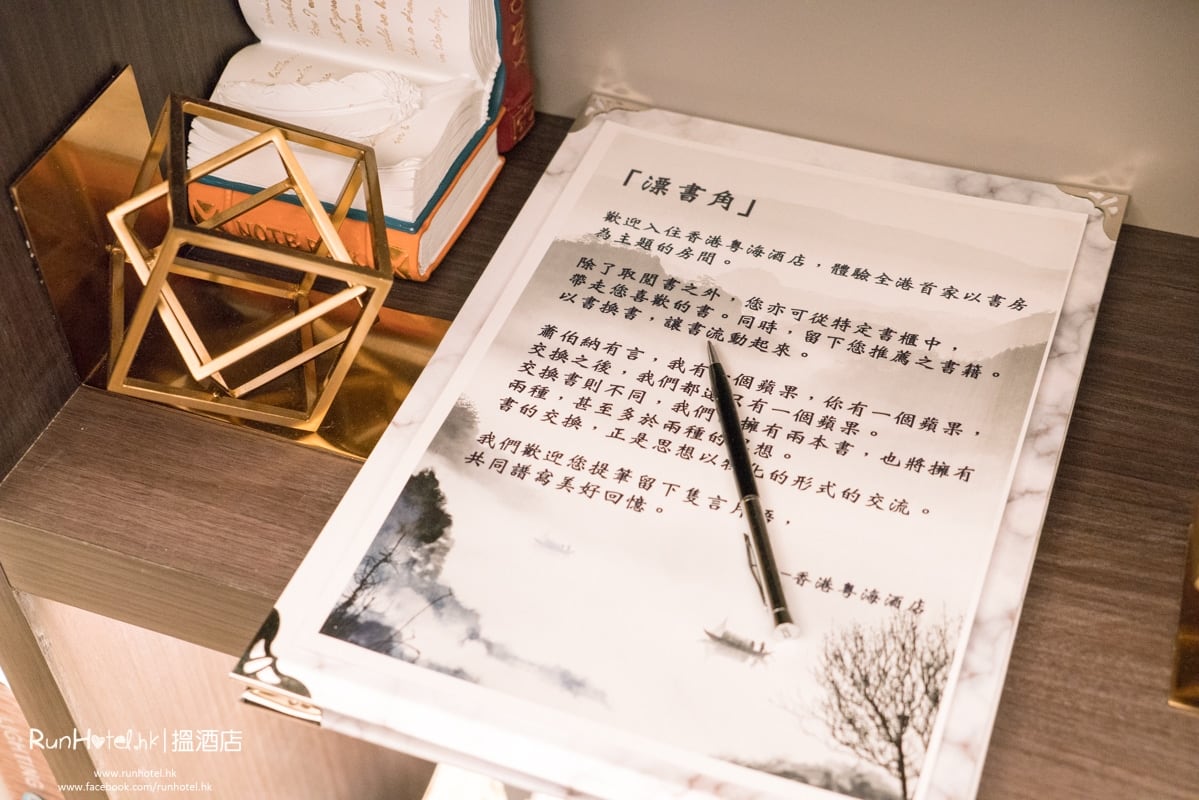 「漂書角」
歡迎入住香港粵海酒店，體驗全港首家以書房
為主題的房間。
除了取閱書之外，您亦可從特定書櫃中，
帶走您喜歡的書。同時，留下您推薦之書籍。
以書換書，讓書流動起來。
蕭伯納有言，我有一個蘋果，你有一個蘋果，
交換之後，我們都還只有一個蘋果。
交換書則不同，我們 擁有兩本書，也將擁有
兩種，甚至多於兩種的思想。
書的交換，正是思想以物化的形式的交流。
我們歡迎您提筆留下隻言片語，
共同譜寫美好回憶。
—香港粵海酒店
NOTE
RunHotel.hk|搵酒店
www.runhotel.hk
www.facebook.com/runhotel.hk
LIGHTING